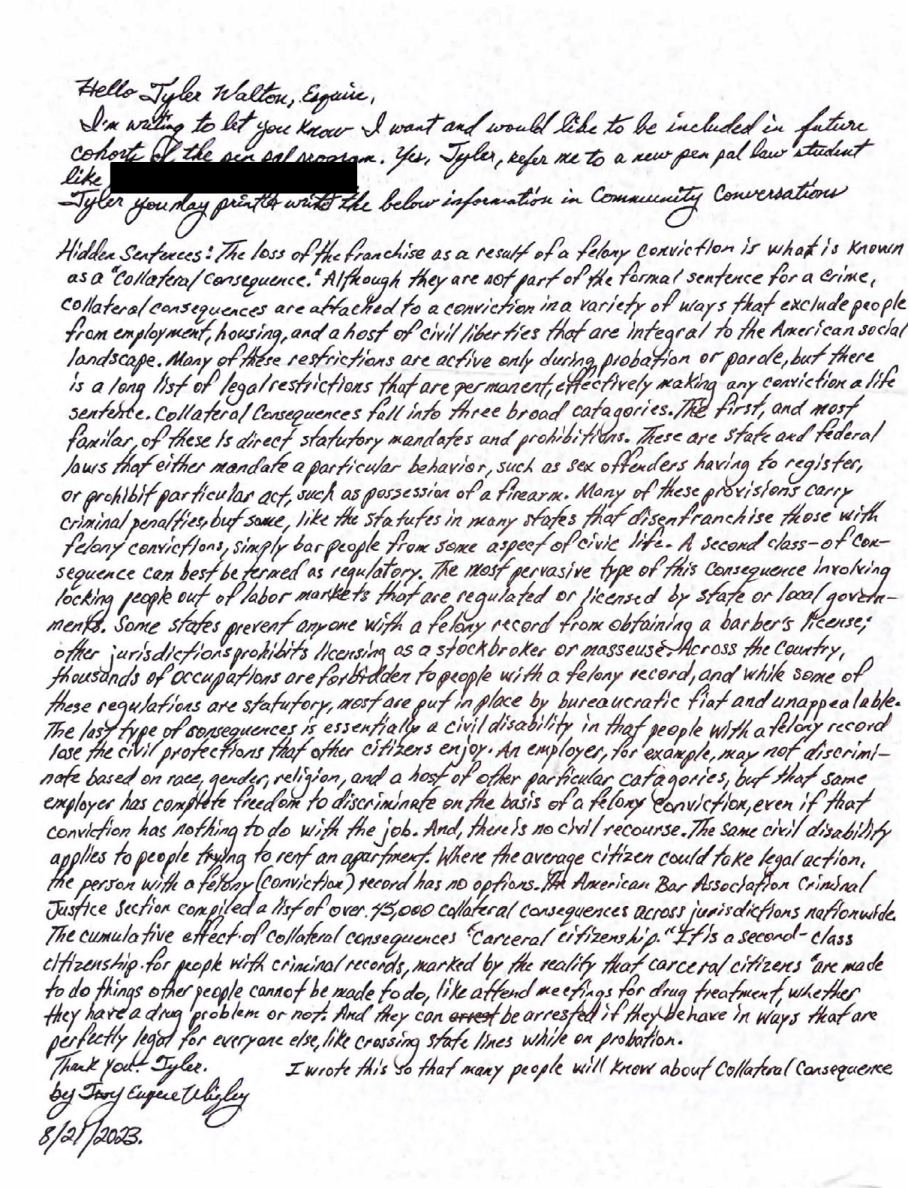 Hello Tyler Walton, Esquire,
I'm writing to let you know I want and would like to be included in future
cohorts of the pen pal program. Yes, Tyler, refer me to a new pen pal law student
like
Tyler you may print & write the below information in Community Conversations
Hidden Sentences: The loss of the franchise as a result of a felony conviction is what is known
as a "Collateral consequence." Although they are not part of the formal sentence for a crime,
collateral consequences are attached to a conviction in a variety of ways that exclude people
from employment, housing, and a host of civil liberties that are integral to the American social
landscape. Many of these restrictions are active only during probation or parole, but there
is a long list of legal restrictions that are permanent, effectively making any conviction a life
sentence. Collateral Consequences fall into three broad catagories. The first, and most
familar, of these Is direct statutory mandates and prohibitions. These are state and federal
laws that either mandate a particular behavior, such as sex offenders having to register,
or prohibit particular act, such as possession of a firearm. Many of these provisions carry
criminal penalties, but some, like the statutes in many states that disenfranchise those with
felony convictions, simply bar people from some aspect of civic life. A second class-of con-
sequence can best be termed as regulatory. The most pervasive type of this Consequence involving
locking people out of labor markets that are regulated or licensed by state or local govern-
ments. Some states prevent anyone with a felony record from obtaining a barber's license;
other jurisdictions prohibits licensing as a stockbroker or masseuse. Across the Country,
thousands of occupations are forbidden to people with a felony record, and while some of
these regulations are statutory, most are put in place by bureaucratic fiat and unappealable.
The last type of consequences is essentially a civil disability in that people with a felony record
lose the civil protections that other citizens enjoy. An employer, for example, may not discrimi-
nate based on race, gender, religion, and a host of other particular catagories, but that same
employer has complete freedom to discriminate on the basis of a felony Conviction, even if that
conviction has nothing to do with the job. And, there is no civil recourse. The same civil disability
applies to people trying to rent an apartment. Where the average citizen could take legal action,
the person with a felony (conviction) record has no options. The American Bar Association Criminal
Justice Section compiled a list of over 45,000 collateral consequences across jurisdictions nationwide.
The cumulative effect of collateral consequences "Carceral citizenship." It is a second-class
citizenship for people with criminal records, marked by the reality that carceral citizens "are made
to do things other people cannot be made to do, like attend meetings for drug treatment, whether
they have a drug problem or not. And they can arrest be arrested if they behave in ways that are
perfectly legal for everyone else, like crossing state lines while on probation.
Thank you - Tyler. I wrote this so that many people will know about Collateral Consequence
by Troy Eugene Wigley
8/21/2023.